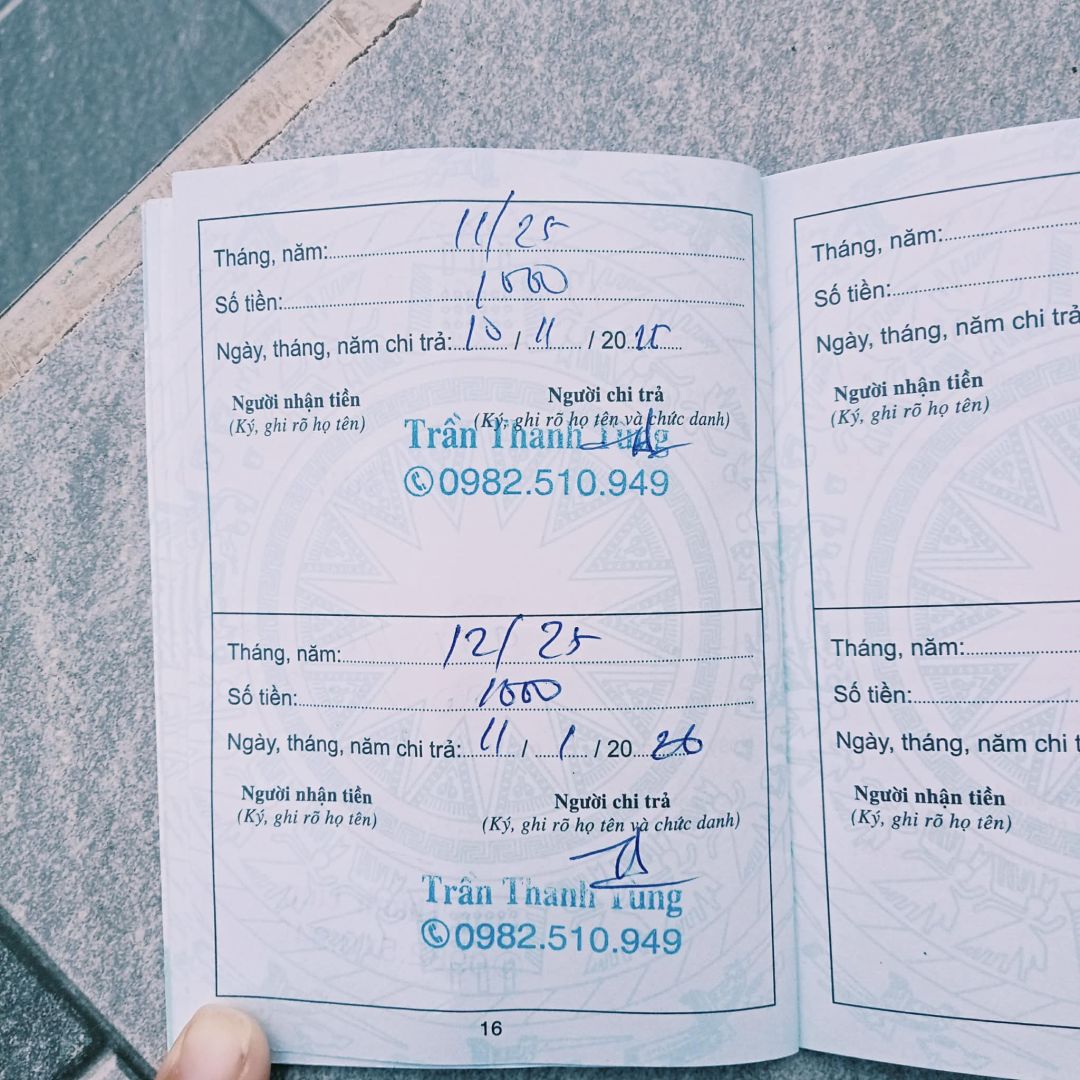 Tháng, năm: 11/25
Số tiền: 1000
Ngày, tháng, năm chi trả: 10 / 11 / 20 25
Người nhận tiền
(Ký, ghi rõ họ tên)
Người chi trả
(Ký, ghi rõ họ tên và chức danh)
Trần Thanh Tùng
0982.510.949
Tháng, năm: 12/25
Số tiền: 1000
Ngày, tháng, năm chi trả: 11 / 1 / 20 26
Người nhận tiền
(Ký, ghi rõ họ tên)
Người chi trả
(Ký, ghi rõ họ tên và chức danh)
Trần Thanh Tùng
0982.510.949
16
Tháng, năm:
Số tiền:
Ngày, tháng, năm chi trả
Người nhận tiền
(Ký, ghi rõ họ tên)
Tháng, năm:
Số tiền:
Ngày, tháng, năm chi
Người nhận tiền
(Ký, ghi rõ họ tên)